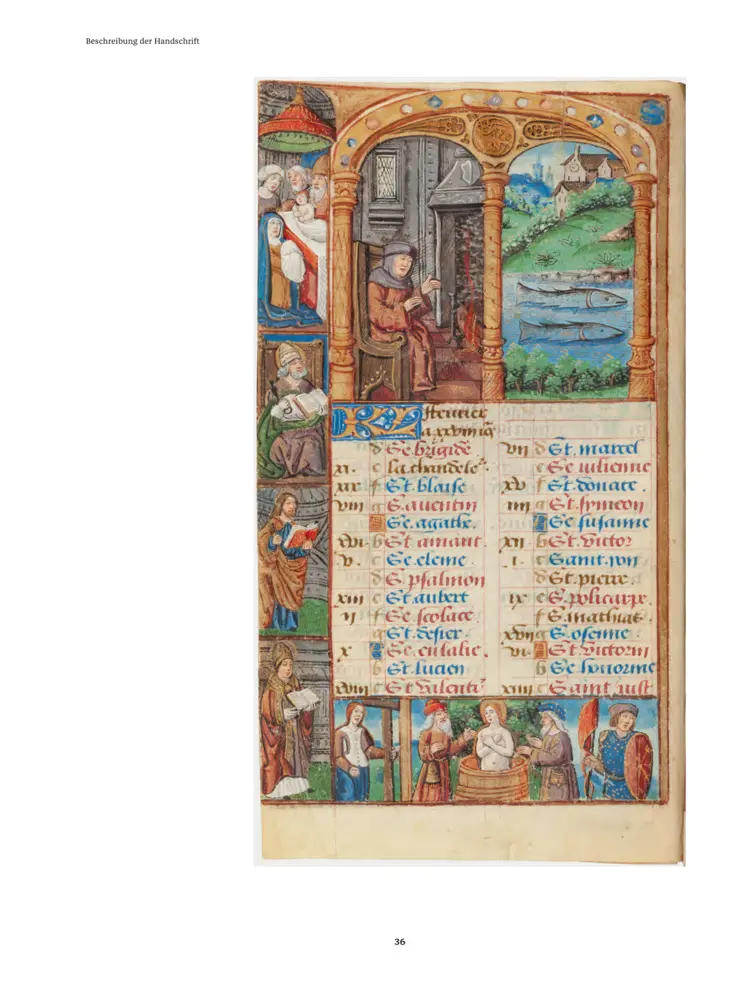 Beschreibung der Handschrift
KL feurier
a xxviii
d Se. brigide
xi. e la chandele
xix f St. blaise
viii g S. auentin
A Se. agathe.
xvi. b St. amant.
v. c Se. eleine.
d S. psalmon
xiii e St. aubert
ii f Se. scolace.
g St. desier.
x A Se. eulalie.
b St. lucien
xviii c St valenti
vii d St. marcel
e Se iulienne
xv f St. donace.
iiii g St. symeon
A Se susanne
xii b St. victor
i. c Saint. ion
d St. pierre.
ix e S. policarpe.
f S. mathias.
xvii g S. osenne.
vi. A St. victorin
b Se honorine
xiiii c Saint iust
36